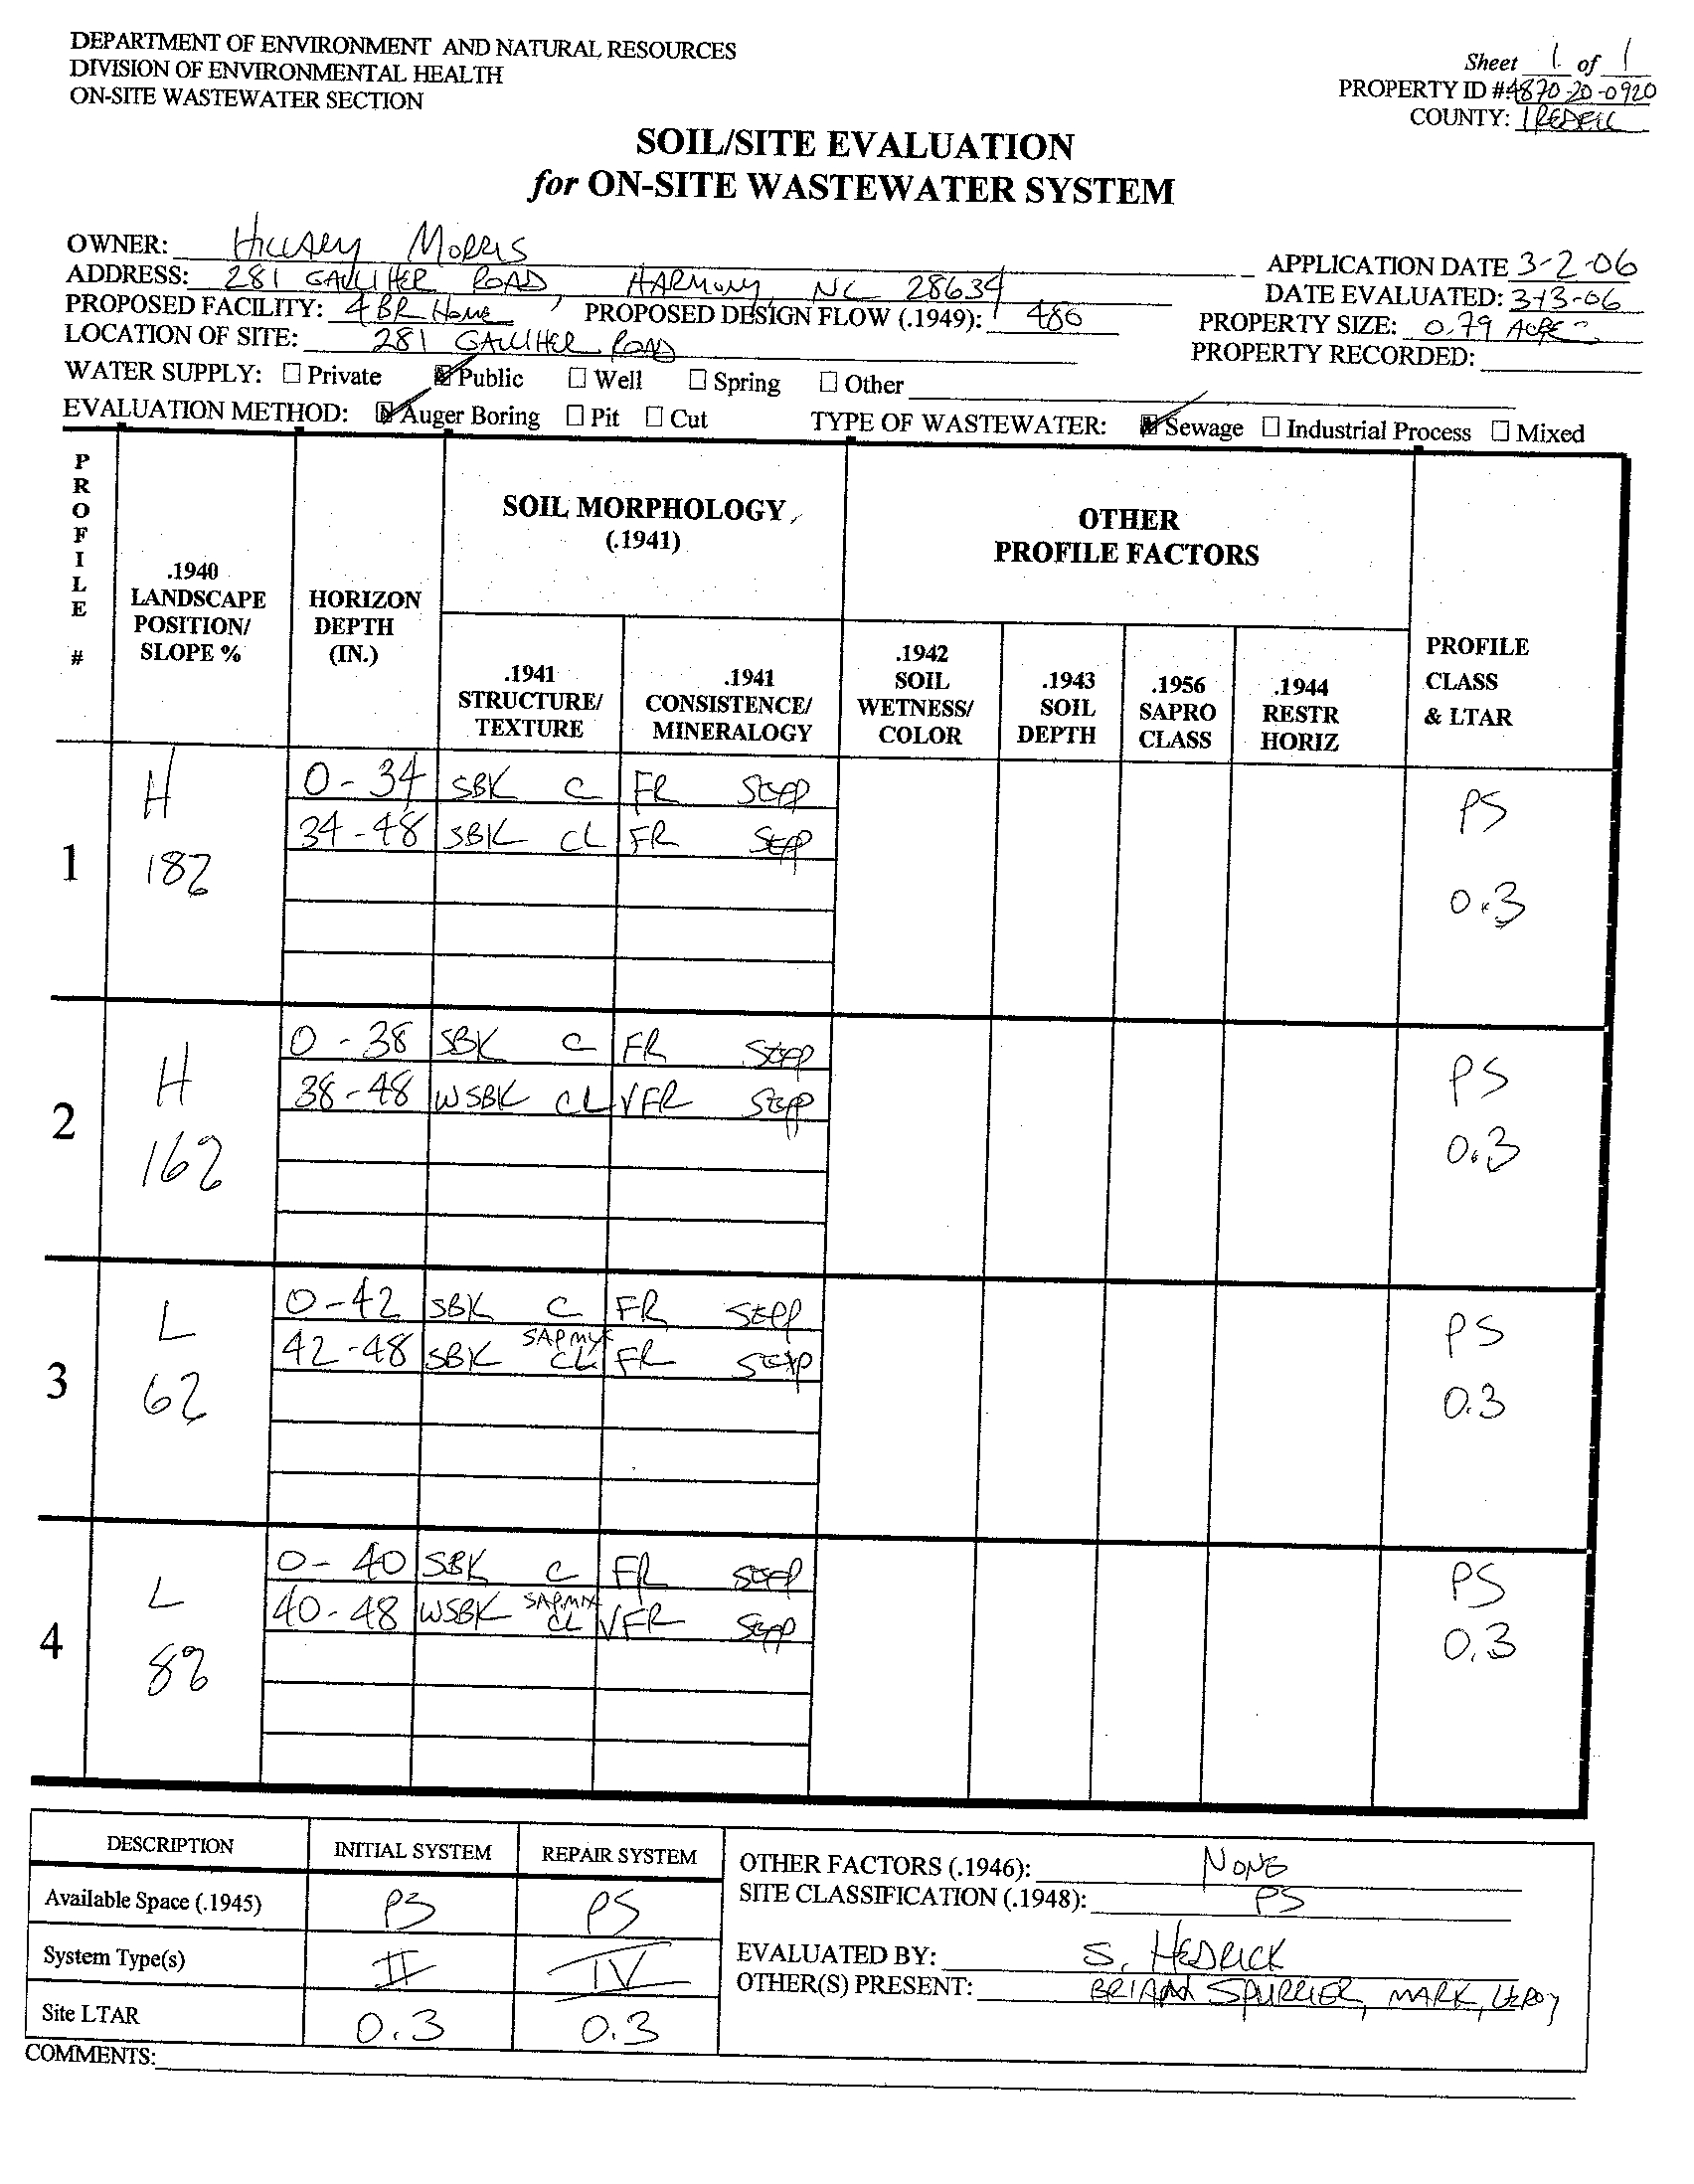 DEPARTMENT OF ENVIRONMENT AND NATURAL RESOURCES
DIVISION OF ENVIRONMENTAL HEALTH
ON-SITE WASTEWATER SECTION
Sheet 1 of 1
PROPERTY ID #: 4870-20-0920
COUNTY: IREDELL
SOIL/SITE EVALUATION
for ON-SITE WASTEWATER SYSTEM
OWNER: HILLARY MORRIS
ADDRESS: 281 GALLIHER ROAD, HARMONY, NC 28634
PROPOSED FACILITY: 4 BR HOME PROPOSED DESIGN FLOW (.1949): 480
LOCATION OF SITE: 281 GALLIHER ROAD
APPLICATION DATE 3-2-06
DATE EVALUATED: 3-13-06
PROPERTY SIZE: 0.79 ACRE
PROPERTY RECORDED:
WATER SUPPLY: ☐ Private ☒ Public ☐ Well ☐ Spring ☐ Other
EVALUATION METHOD: ☒ Auger Boring ☐ Pit ☐ Cut TYPE OF WASTEWATER: ☒ Sewage ☐ Industrial Process ☐ Mixed
PROFILE #
.1940 LANDSCAPE POSITION/ SLOPE %
HORIZON DEPTH (IN.)
SOIL MORPHOLOGY (.1941)
.1941 STRUCTURE/ TEXTURE
.1941 CONSISTENCE/ MINERALOGY
OTHER PROFILE FACTORS
.1942 SOIL WETNESS/ COLOR
.1943 SOIL DEPTH
.1956 SAPRO CLASS
.1944 RESTR HORIZ
PROFILE CLASS & LTAR
1 H 18%
0-34 SBK C FR SEXP
34-48 SBK CL FR SEXP
PS 0.3
2 H 16%
0-38 SBK C FR SEXP
38-48 WSBK CL VFR SEXP
PS 0.3
3 L 6%
0-42 SBK C FR SEXP
42-48 SBK SAP MIX CL FR SEXP
PS 0.3
4 L 8%
0-40 SBK C FR SEXP
40-48 WSBK SAP.MIX CL VFR SEXP
PS 0.3
DESCRIPTION INITIAL SYSTEM REPAIR SYSTEM
Available Space (.1945) PS PS
System Type(s) II IV
Site LTAR 0.3 0.3
OTHER FACTORS (.1946): NONE
SITE CLASSIFICATION (.1948): PS
EVALUATED BY: S. HEDRICK
OTHER(S) PRESENT: BRIAN SPURRIER, MARK, LEROY
COMMENTS: